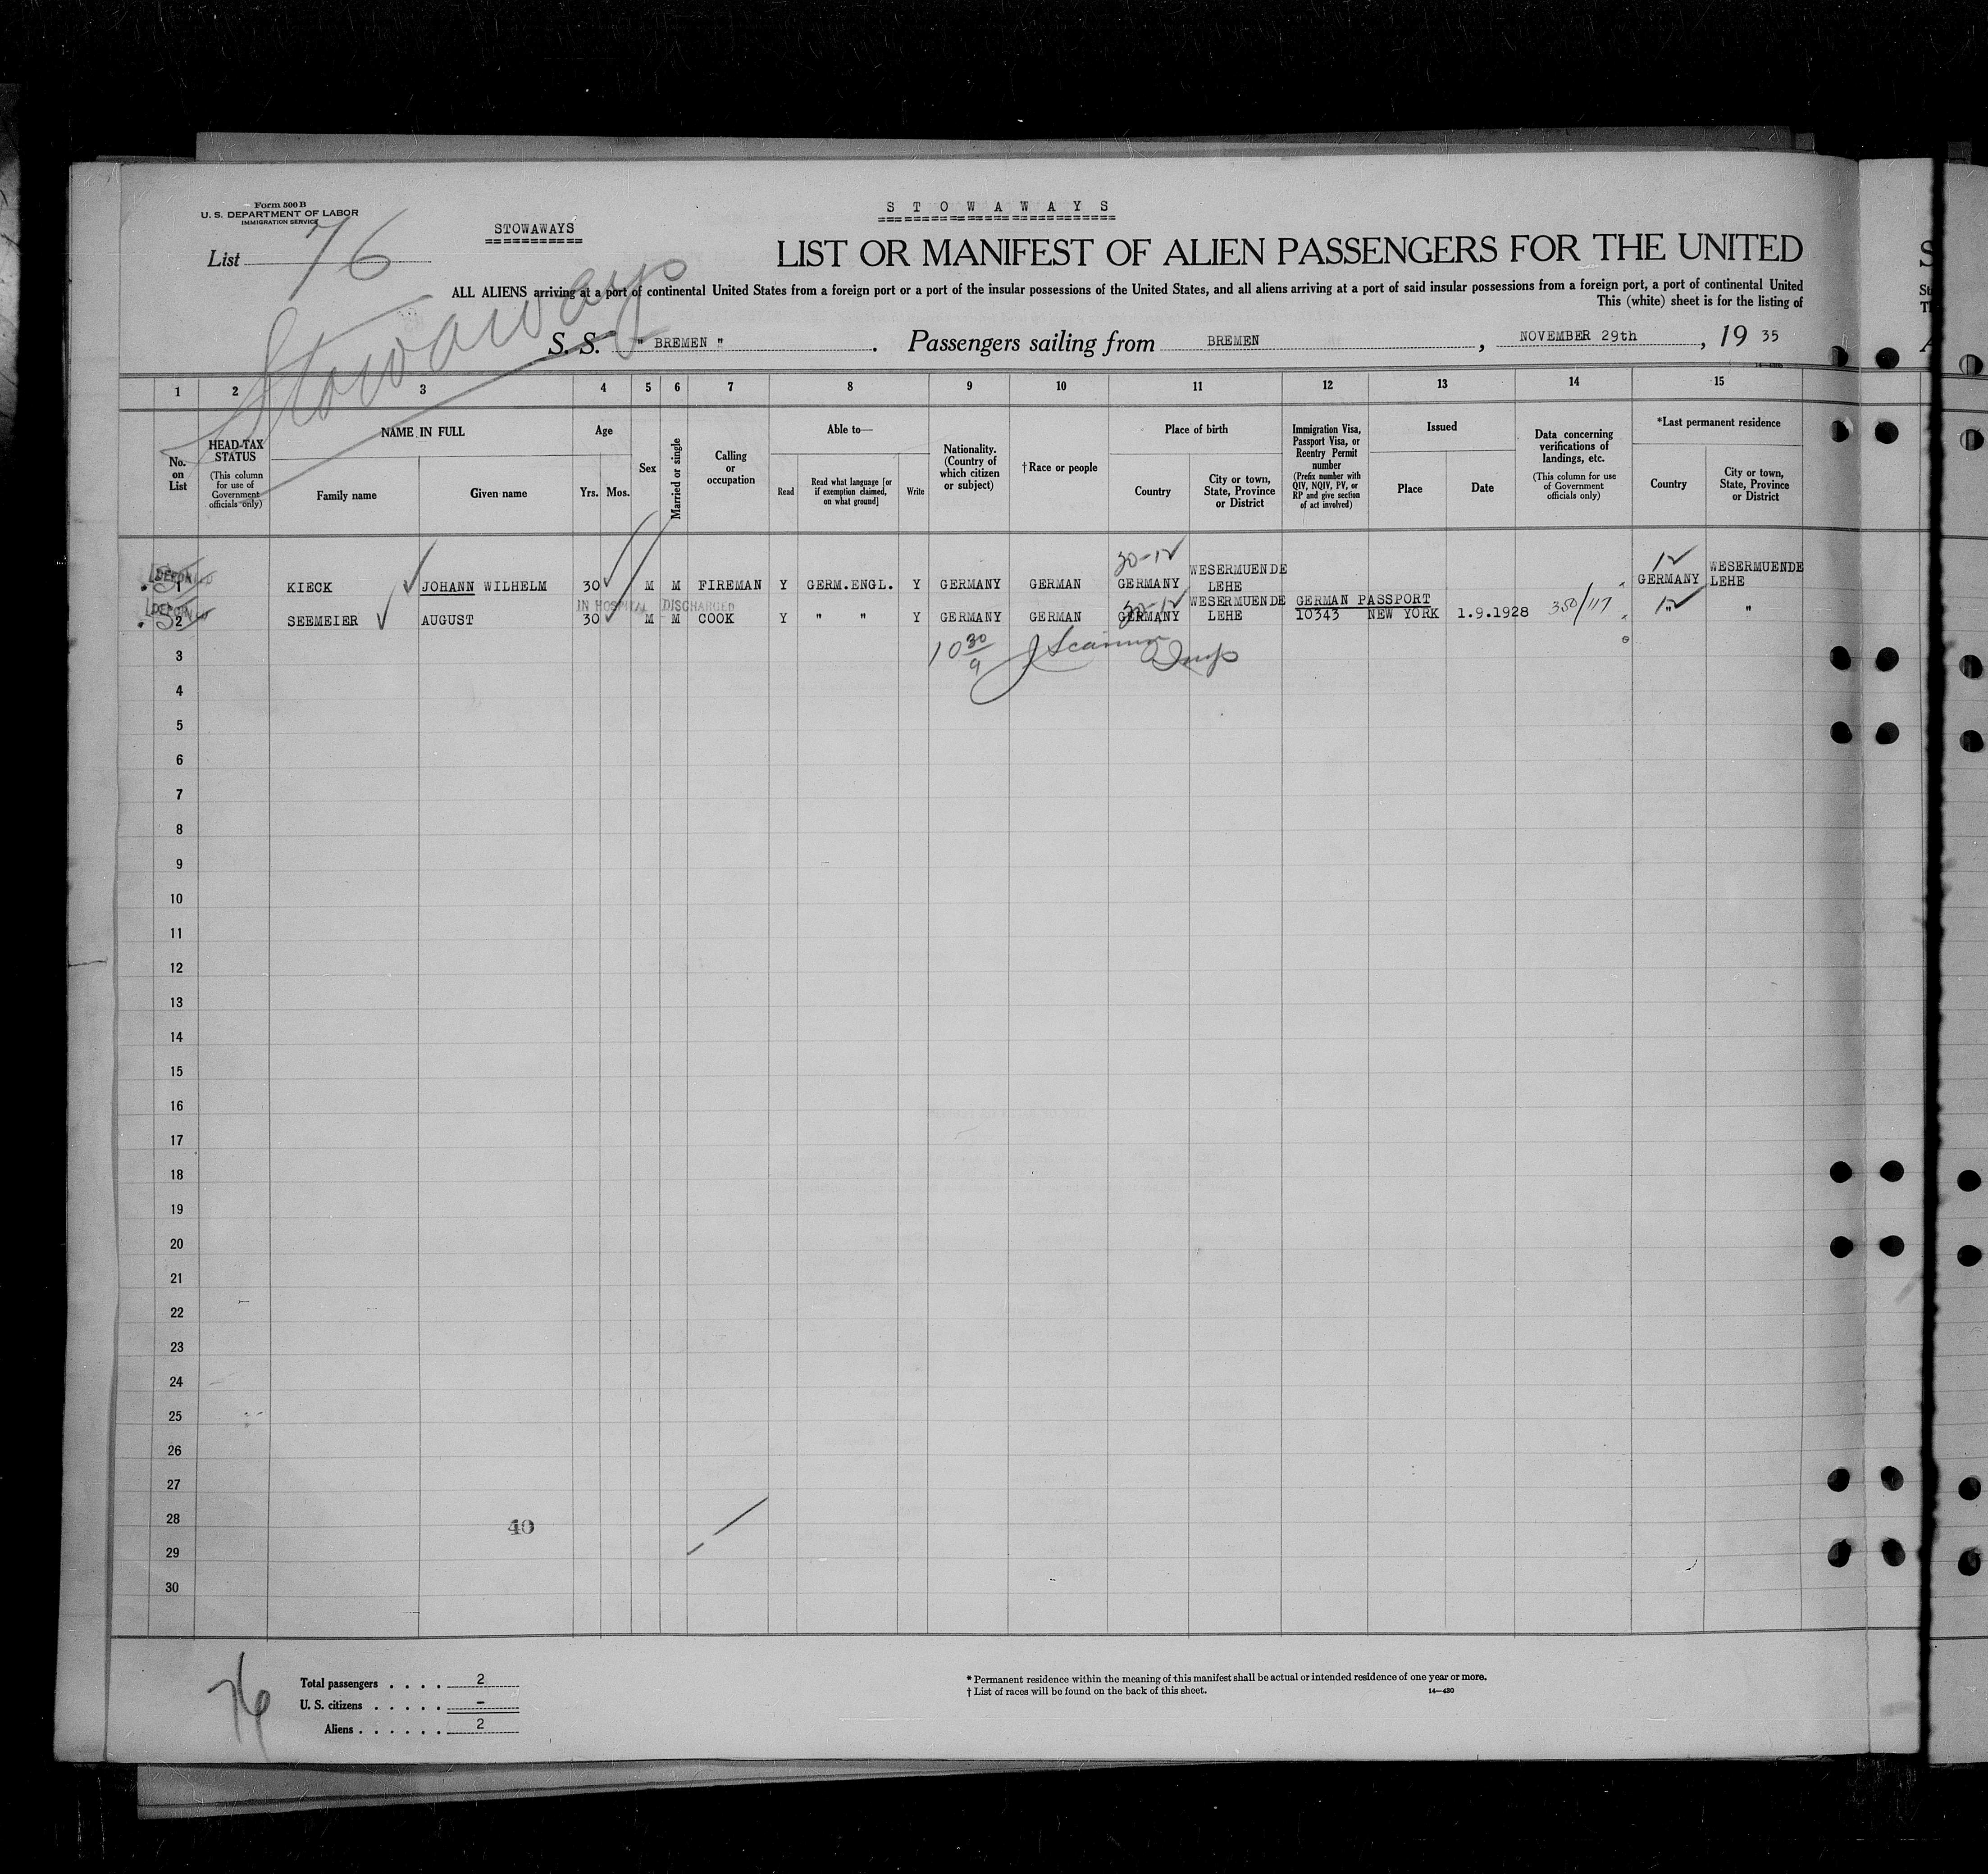 Form 500 B
U. S. DEPARTMENT OF LABOR
IMMIGRATION SERVICE
List 76
STOWAWAYS
Stowaways
S T O W A W A Y S
LIST OR MANIFEST OF ALIEN PASSENGERS FOR THE UNITED
ALL ALIENS arriving at a port of continental United States from a foreign port or a port of the insular possessions of the United States, and all aliens arriving at a port of said insular possessions from a foreign port, a port of continental United
This (white) sheet is for the listing of
S. S. " BREMEN " . Passengers sailing from BREMEN , NOVEMBER 29th , 19 35
1 2 3 4 5 6 7 8 9 10 11 12 13 14 15
No. on List
HEAD-TAX STATUS
(This column for use of Government officials only)
NAME IN FULL
Family name Given name
Age
Yrs. Mos.
Sex
Married or single
Calling or occupation
Able to—
Read
Read what language [or if exemption claimed, on what ground]
Write
Nationality. (Country of which citizen or subject)
† Race or people
Place of birth
Country
City or town, State, Province or District
Immigration Visa, Passport Visa, or Reentry Permit number
(Prefix number with QIV, NQIV, PV, or RP and give section of act involved)
Issued
Place Date
Data concerning verifications of landings, etc.
(This column for use of Government officials only)
*Last permanent residence
Country
City or town, State, Province or District
1 KIECK JOHANN WILHELM 30 M M FIREMAN Y GERM.ENGL. Y GERMANY GERMAN GERMANY WESERMUENDE LEHE GERMANY WESERMUENDE LEHE
IN HOSPITAL DISCHARGED
2 SEEMEIER AUGUST 30 M M COOK Y " " Y GERMANY GERMAN GERMANY WESERMUENDE LEHE GERMAN PASSPORT 10343 NEW YORK 1.9.1928 350/117 " "
3
4
5
6
7
8
9
10
11
12
13
14
15
16
17
18
19
20
21
22
23
24
25
26
27
28
29
30
40
76
Total passengers . . . . 2
U. S. citizens . . . . . –
Aliens . . . . . . 2
* Permanent residence within the meaning of this manifest shall be actual or intended residence of one year or more.
† List of races will be found on the back of this sheet.
14—430